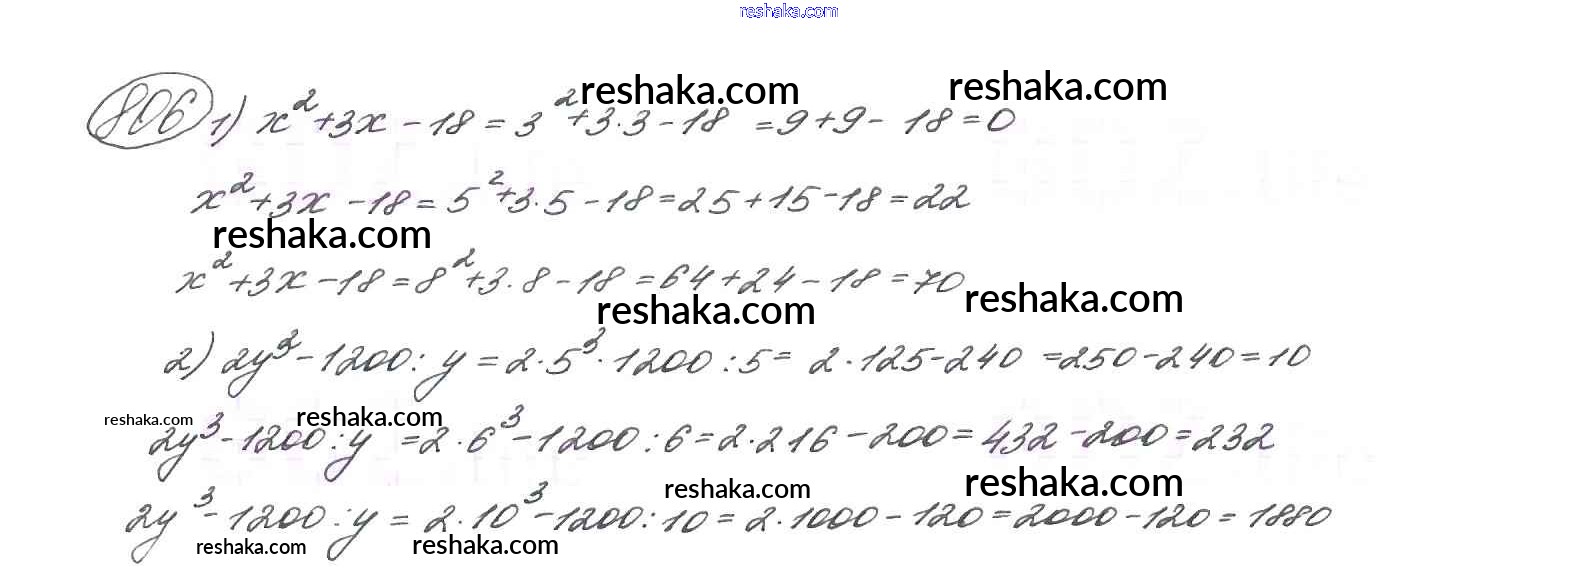 reshaka.com
806 1) x²+3x-18=3²+3·3-18=9+9-18=0
reshaka.com reshaka.com
x²+3x-18=5²+3·5-18=25+15-18=22
reshaka.com
x²+3x-18=8²+3·8-18=64+24-18=70
reshaka.com reshaka.com
2) 2y³-1200:y=2·5³·1200:5=2·125-240=250-240=10
reshaka.com reshaka.com
2y³-1200:y=2·6³-1200:6=2·216-200=432-200=232
reshaka.com reshaka.com
2y³-1200:y=2·10³-1200:10=2·1000-120=2000-120=1880
reshaka.com reshaka.com